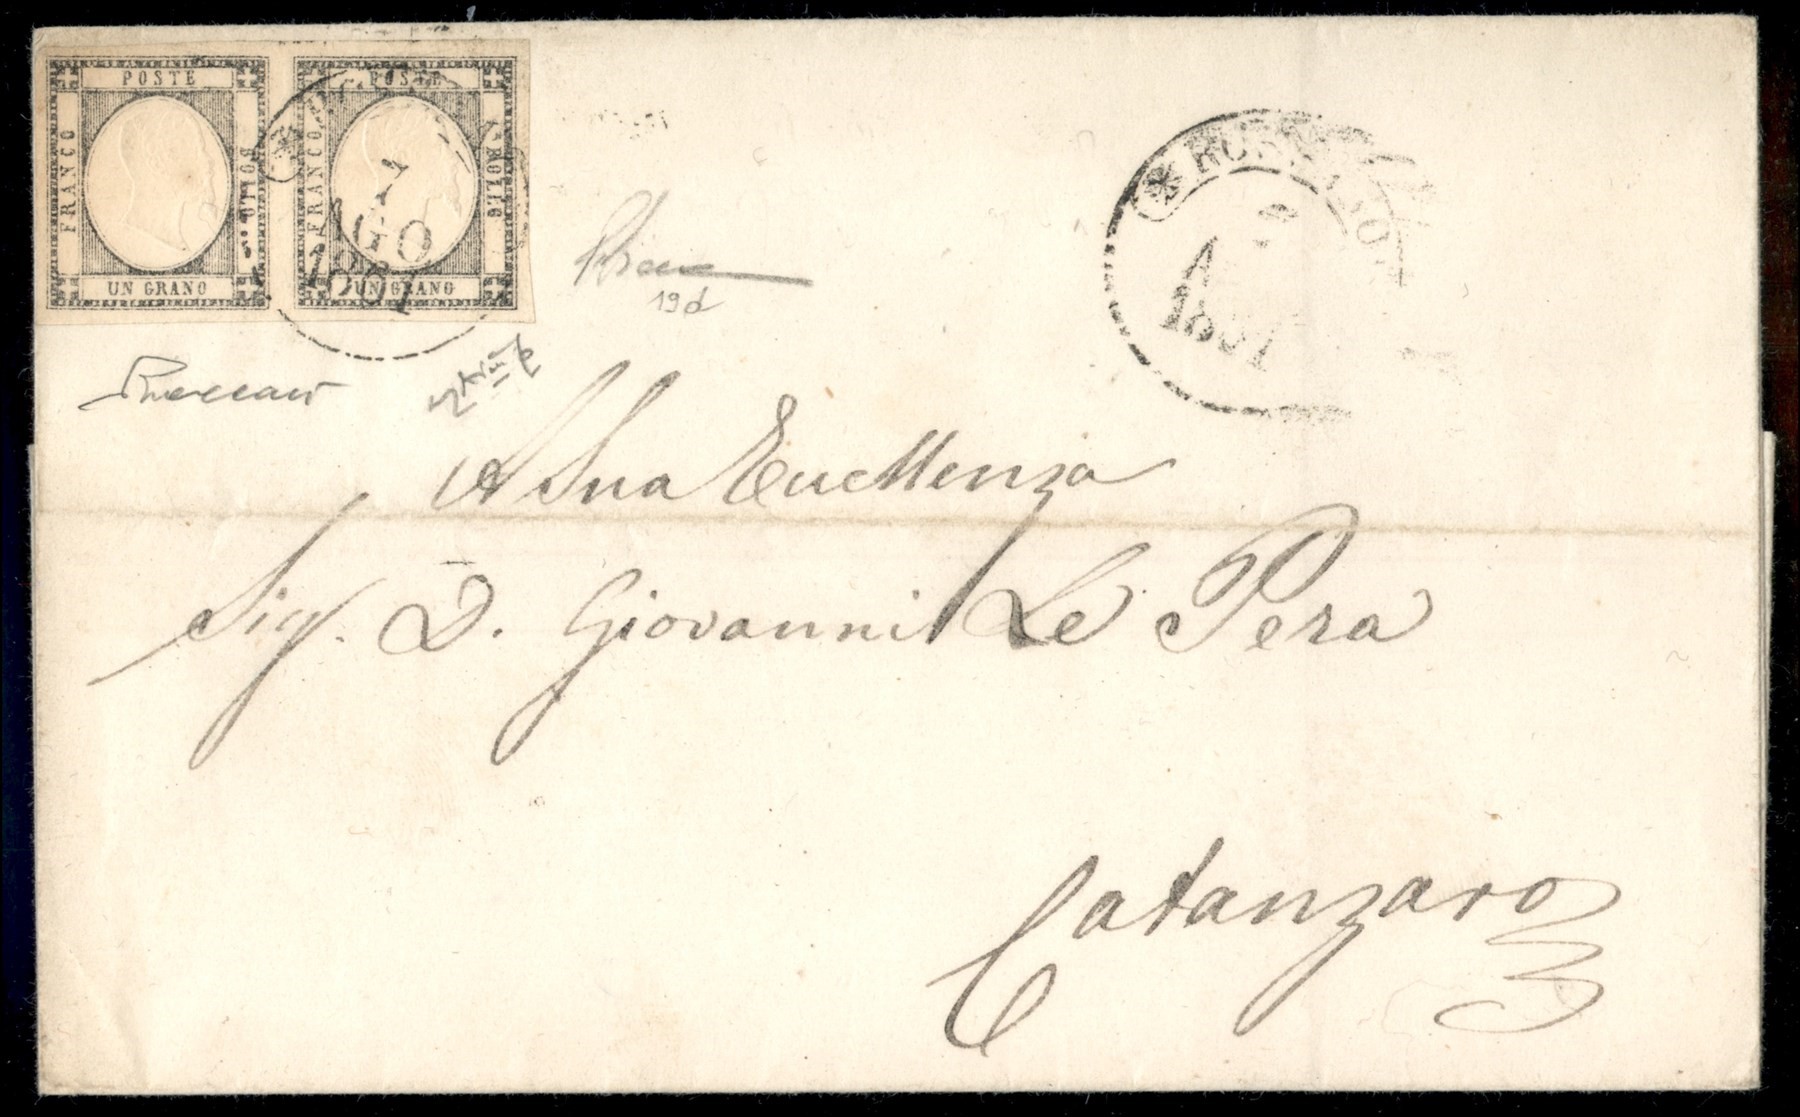 POSTE
FRANCO
BOLLO
UN GRANO
POSTE
FRANCO
BOLLO
UN GRANO
AGO
1861
ROSSANO
19d
A Sua Eccellenza
Sig. D. Giovanni Le Pera
Catanzaro